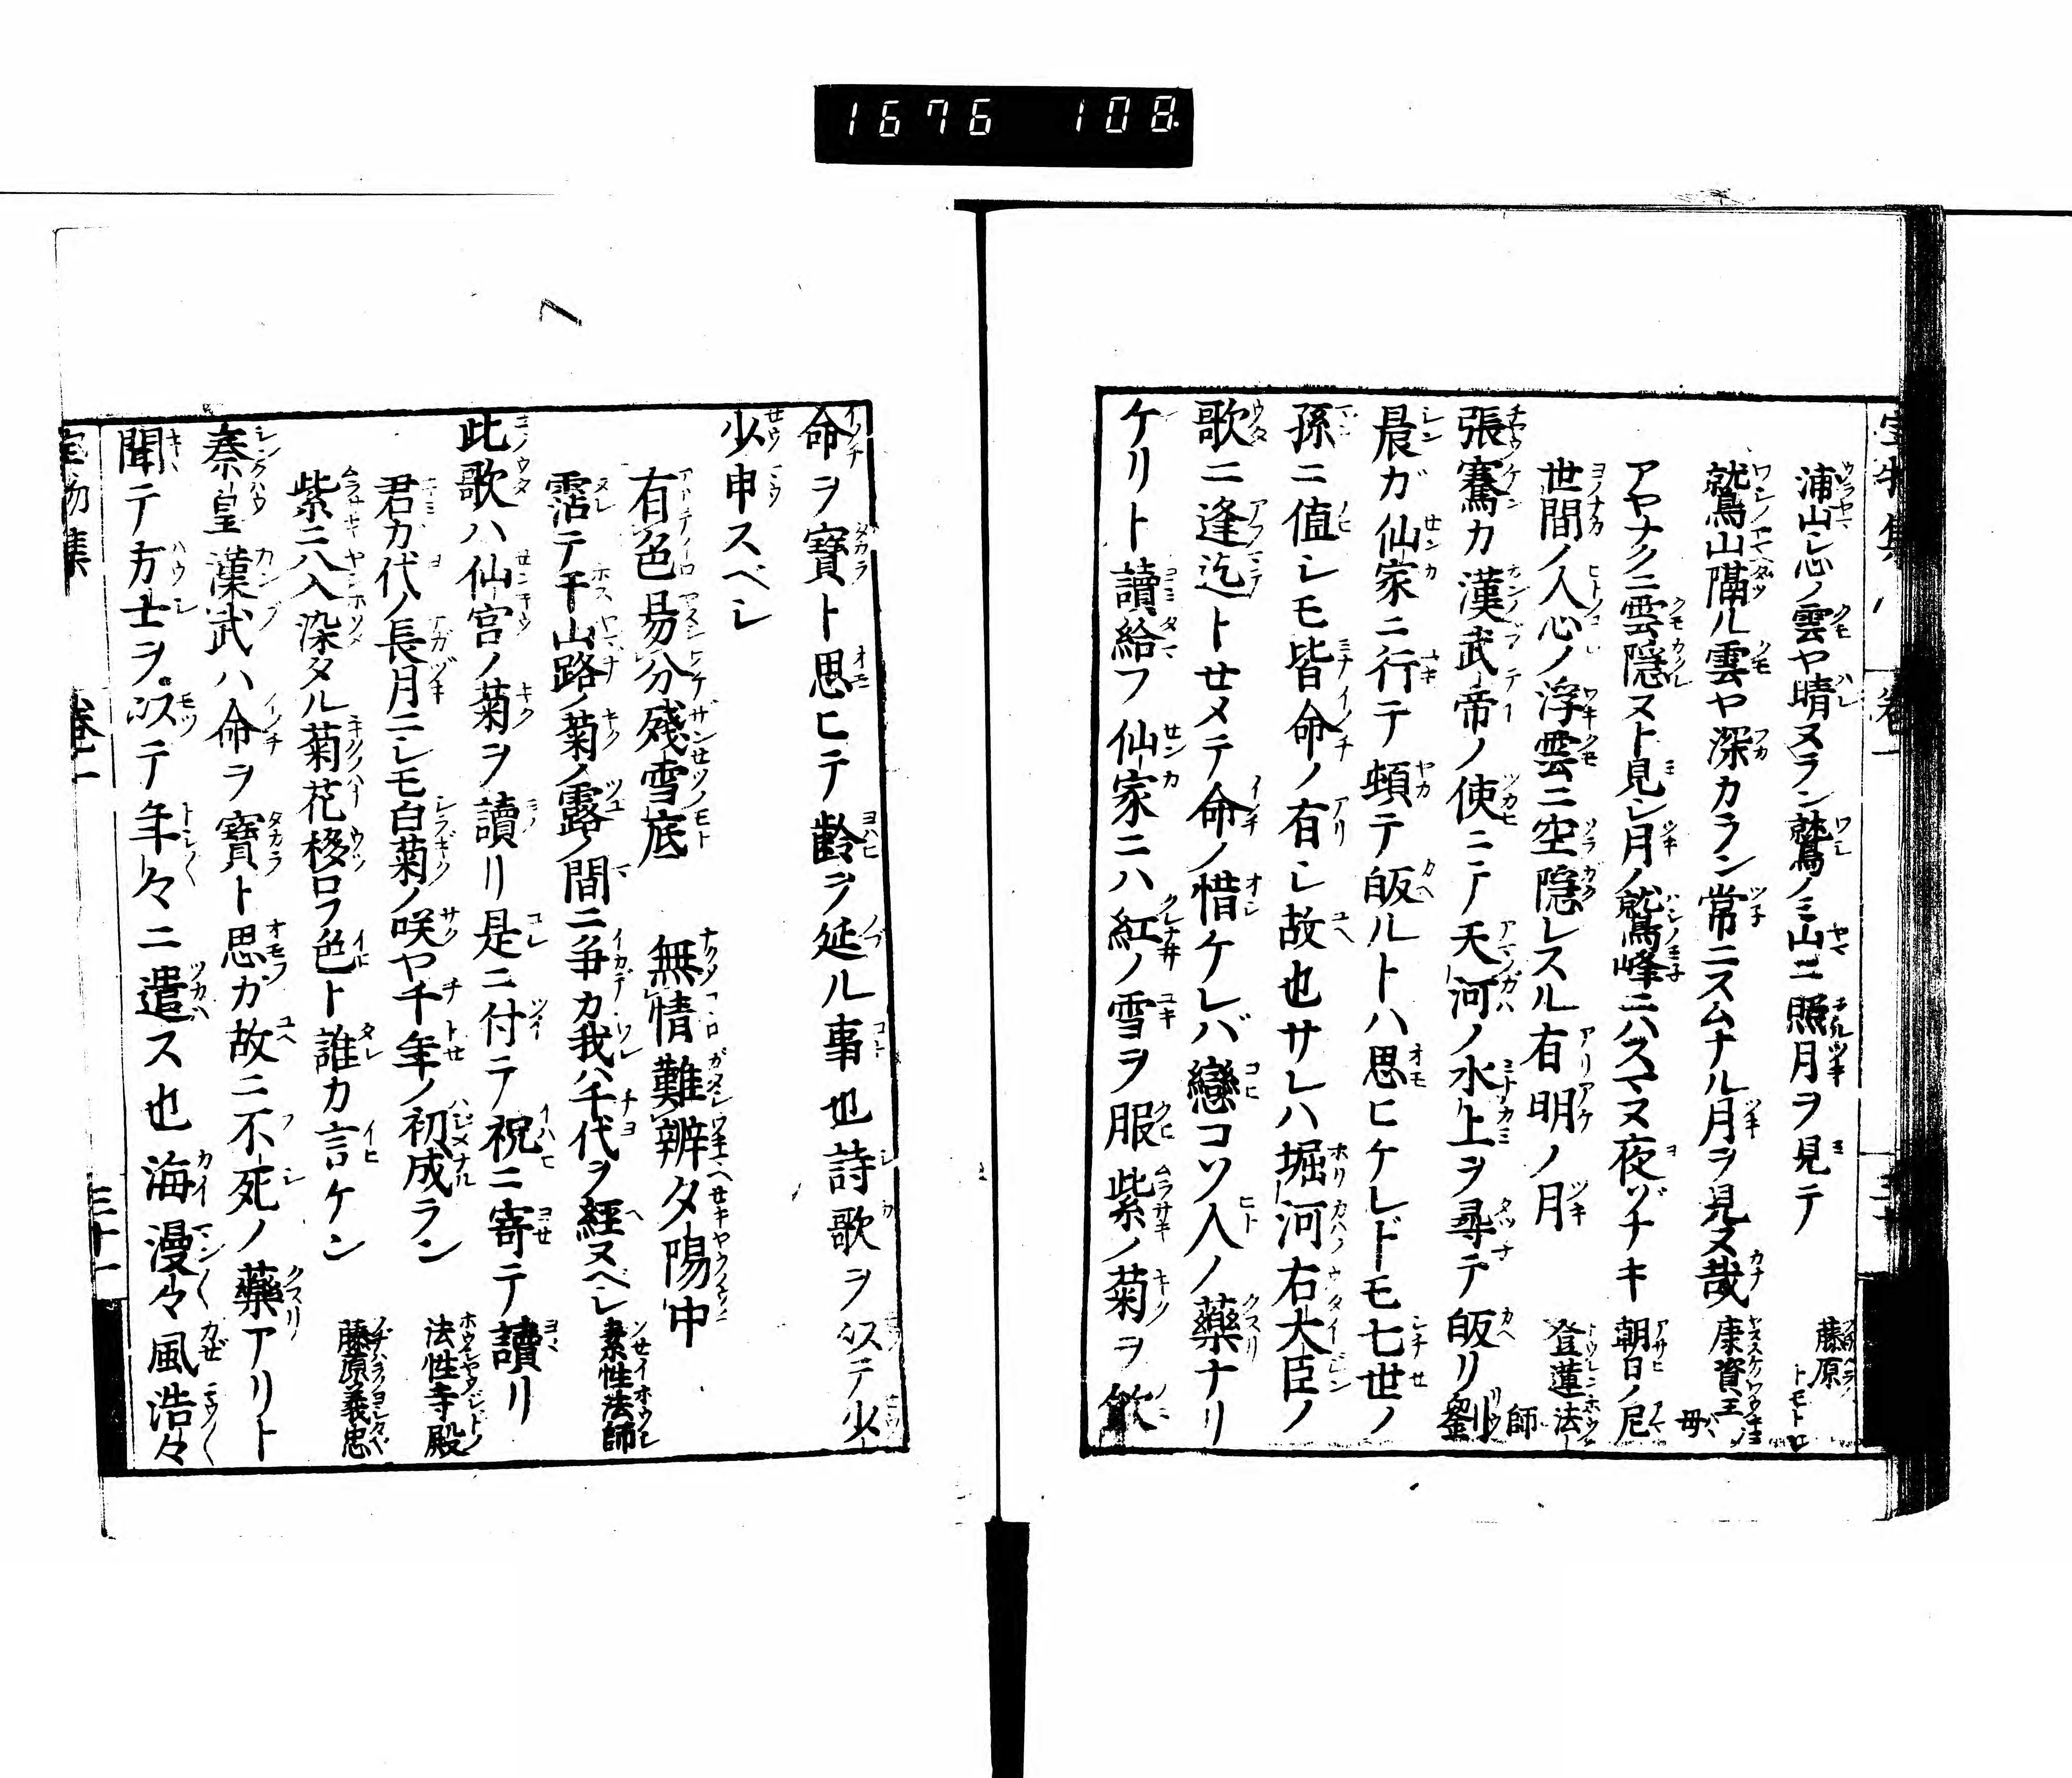 1676 108
浦山シ心ノ雲ヤ晴ヌラン鷲ノミ山ニ照月ヲ見テ 藤原トモトロ
鷲山隔ル雲ヤ深カラン常ニスムナル月ヲ見ヌ哉 康資王母
アヤナクニ雲隠ヌト見シ月ノ鷲峰ニハスマヌ夜ゾナキ 朝日ノ尼
世間ノ人心ノ浮雲ニ空隠レスル有明ノ月 登蓮法師
張騫カ漢武帝ノ使ニテ天河ノ水上ヲ尋テ皈リ劉
晨ガ仙家ニ行テ頓テ皈ルトハ思ヒケレドモ七世ノ
孫ニ値シモ皆命ノ有シ故也サレハ堀河右大臣ノ
歌ニ逢迄トセメテ命ノ惜ケレバ戀コソ人ノ藥ナリ
ケリト讀給フ仙家ニハ紅ノ雪ヲ服紫ノ菊ヲ飲
命ヲ寶ト思ヒテ齡ヲ延ル事也詩歌ヲ以テ少
少申スベシ
有色易分殘雪底 無情難辨夕陽中
霑テ干山路ノ菊ノ露ノ間ニ争カ我ハ千代ヲ經ヌベシ 素性法師
此歌ハ仙宮ノ菊ヲ讀リ是ニ付テ祝ニ寄テ讀リ
君ガ代ノ長月ニシモ白菊ノ咲ヤ千年ノ初成ラン 法性寺殿
紫ニ八入染タル菊花移ロフ色ト誰カ言ケン 藤原義忠
秦皇漢武ハ命ヲ寶ト思ガ故ニ不死ノ藥アリト
聞テ方士ヲ以テ年々ニ遣ス也海漫々風浩々
宝物集 巻一 三十一